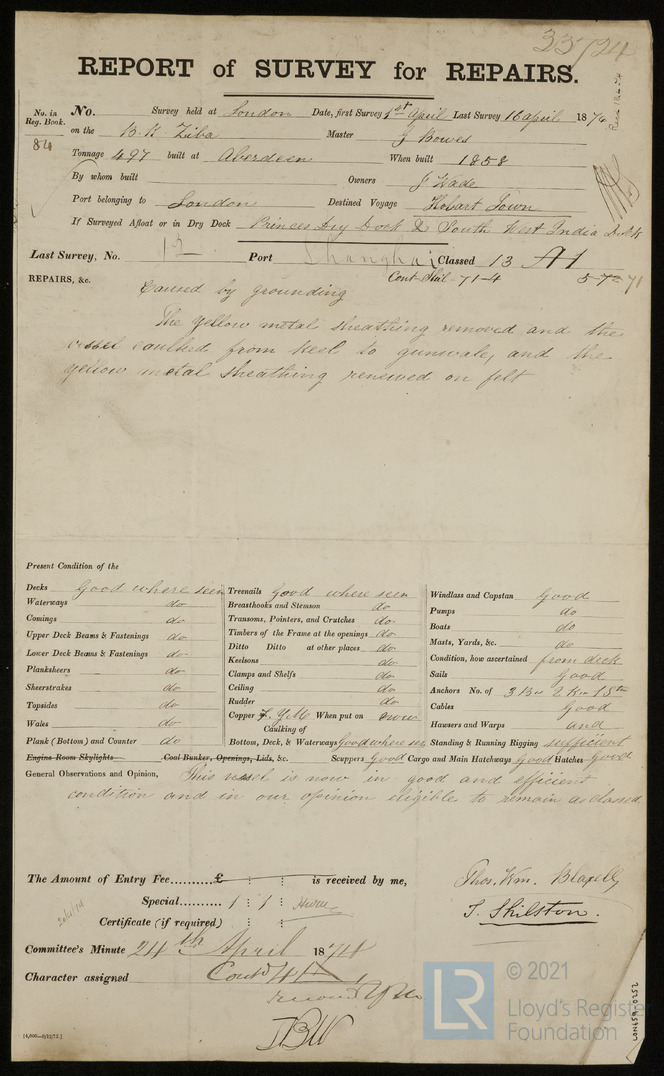 33724
REPORT of SURVEY for REPAIRS.
No. in Reg. Book. No. Survey held at London Date, first Survey 1st April Last Survey 16 april 1874
84 on the Bk Ziba Master J Bowes
Tonnage 497 built at Aberdeen When built 1858
By whom built Owners J Wade
Port belonging to London Destined Voyage Hobart Town
If Surveyed Afloat or in Dry Dock Princes Dry Dock & South West India Dock
Last Survey, No. 12 Port Shanghai Classed 13 A1
REPAIRS, &c. Cont Shil - 71-4 5-7- 71
Caused by grounding
The Yellow metal sheathing removed and the
vessel caulked from keel to gunwale, and the
yellow metal sheathing renewed on felt
Present Condition of the
Decks good where seen Treenails good where seen Windlass and Capstan Good
Waterways do Breasthooks and Stemson do Pumps do
Comings do Transoms, Pointers, and Crutches do Boats do
Upper Deck Beams & Fastenings do Timbers of the Frame at the openings do Masts, Yards, &c. do
Lower Deck Beams & Fastenings do Ditto Ditto at other places do Condition, how ascertained from deck
Planksheers do Keelsons do Sails Good
Sheerstrakes do Clamps and Shelfs do Anchors No. of 3 Br 2 Km 1 Stm
Topsides do Ceiling do Cables Good
Wales do Rudder do Hawsers and Warps and
Copper Y.M. When put on now
Caulking of
Plank (Bottom) and Counter do Bottom, Deck, & Waterways Good where seen Standing & Running Rigging sufficient
Engine Room Skylights Coal Bunker, Openings, Lids, &c. Scuppers Good Cargo and Main Hatchways good Hatches good
General Observations and Opinion, This vessel is now in good and efficient
condition and in our opinion eligible to remain as classed
The Amount of Entry Fee..........£ : : is received by me,
Special.......... 1 : 1 :
Certificate (if required) : :
Thos. Wm. Blaxell
T. Skilston.
Committee's Minute 24th April 1874
Character assigned Contd
JBW
[4,000—9/12/72.]
LR © 2021
Lloyd's Register
Foundation